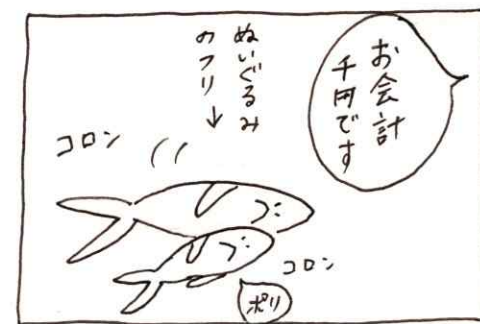 お会計
千円です
ぬいぐるみ
のフリ→
コロン
コロン
ポリ